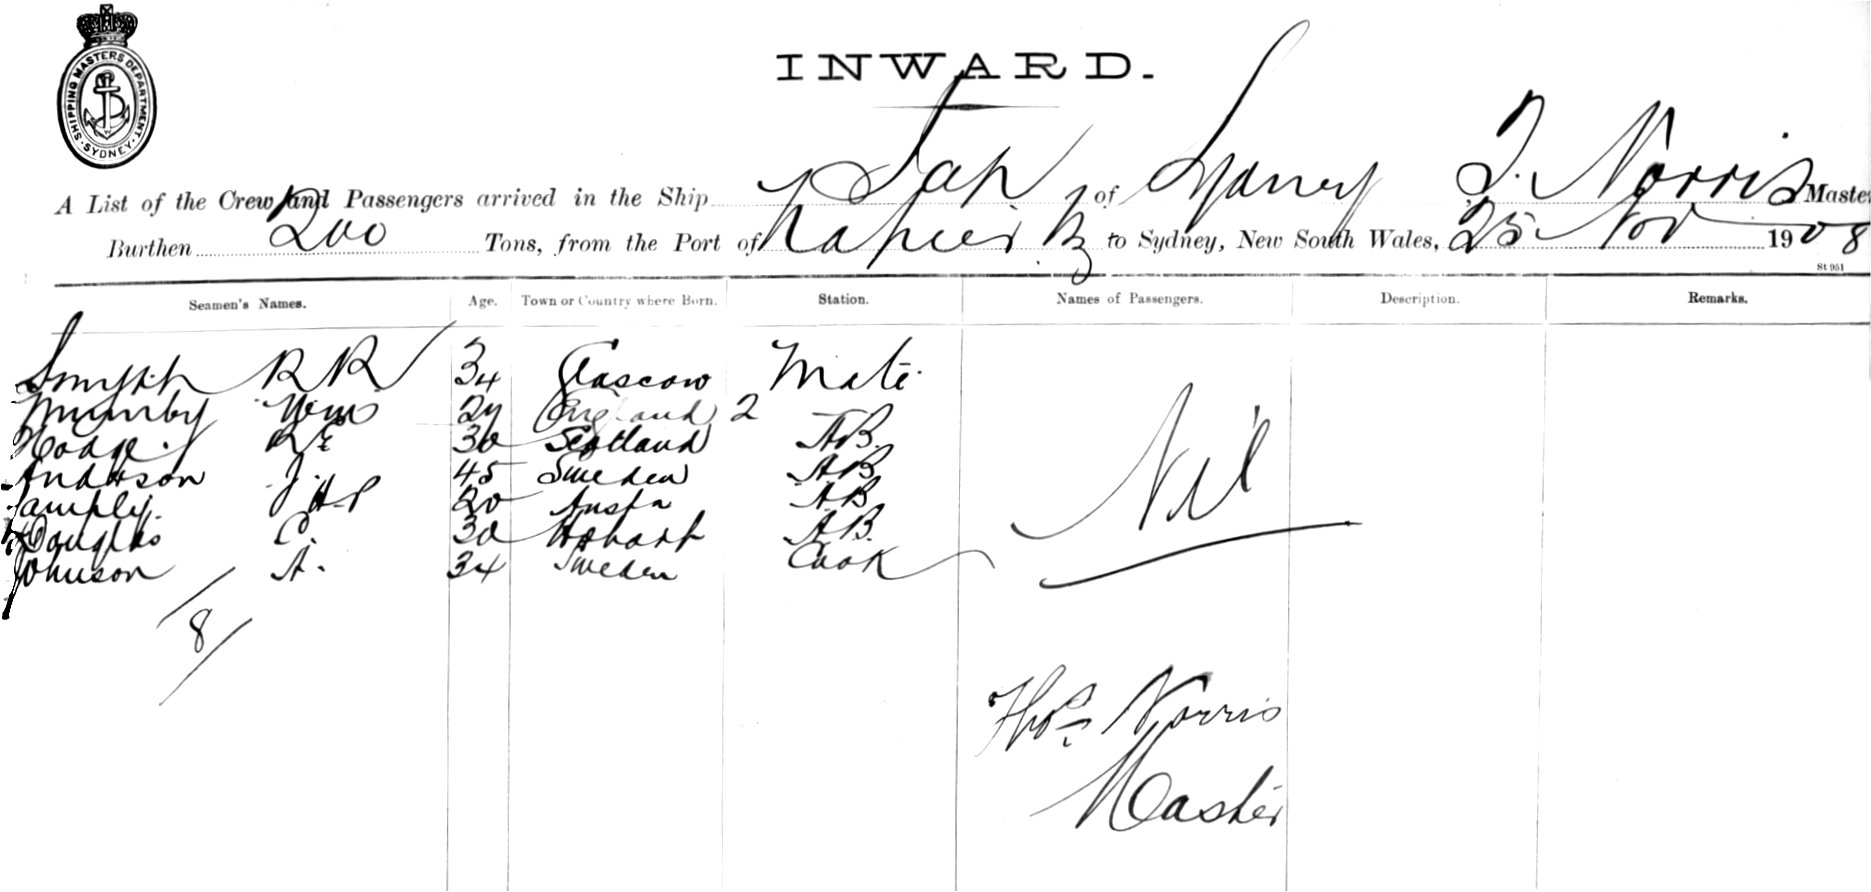 SHIPPING MASTERS DEPARTMENT. SYDNEY
INWARD.
A List of the Crew and Passengers arrived in the Ship Jap of Sydney T. Norris Master
Burthen 200 Tons, from the Port of Napier NZ to Sydney, New South Wales, 25 Nov 1908
St 951
Seamen's Names. Age. Town or Country where Born. Station. Names of Passengers. Description. Remarks.
Smyth R R 34 Glascow Mate
Mumby Wm 24 England 2
Hodge R E 30 Scotland AB.
Anderson J. 45 Sweden AB
H P 20 Austa AB
Douglas C. 30 Hobart AB.
Johnson A. 34 Sweden Cook
Nil
8
Thos Norris
Master